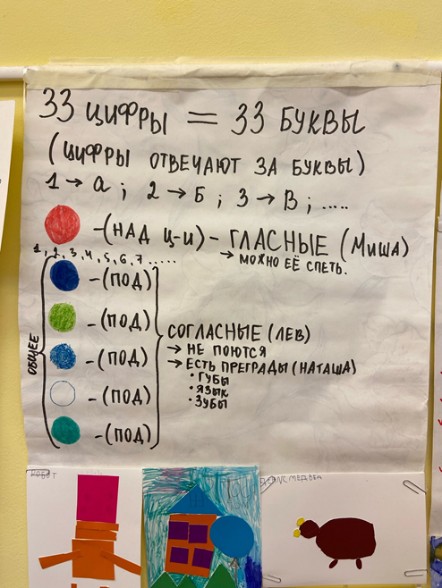 33 ЦИФРЫ = 33 БУКВЫ
(ЦИФРЫ ОТВЕЧАЮТ ЗА БУКВЫ)
1 → а ; 2 → Б ; 3 → В ; .....
-(НАД Ц-И) - ГЛАСНЫЕ (МИША)
→ МОЖНО ЕЁ СПЕТЬ.
1, 2, 3, 4, 5, 6, 7 .....
ОБЩЕЕ
-(ПОД)
-(ПОД)
-(ПОД)
-(ПОД)
-(ПОД)
СОГЛАСНЫЕ (ЛЕВ)
→ НЕ ПОЮТСЯ
→ ЕСТЬ ПРЕГРАДЫ (НАТАША)
• ГУБЫ
• ЯЗЫК
• ЗУБЫ